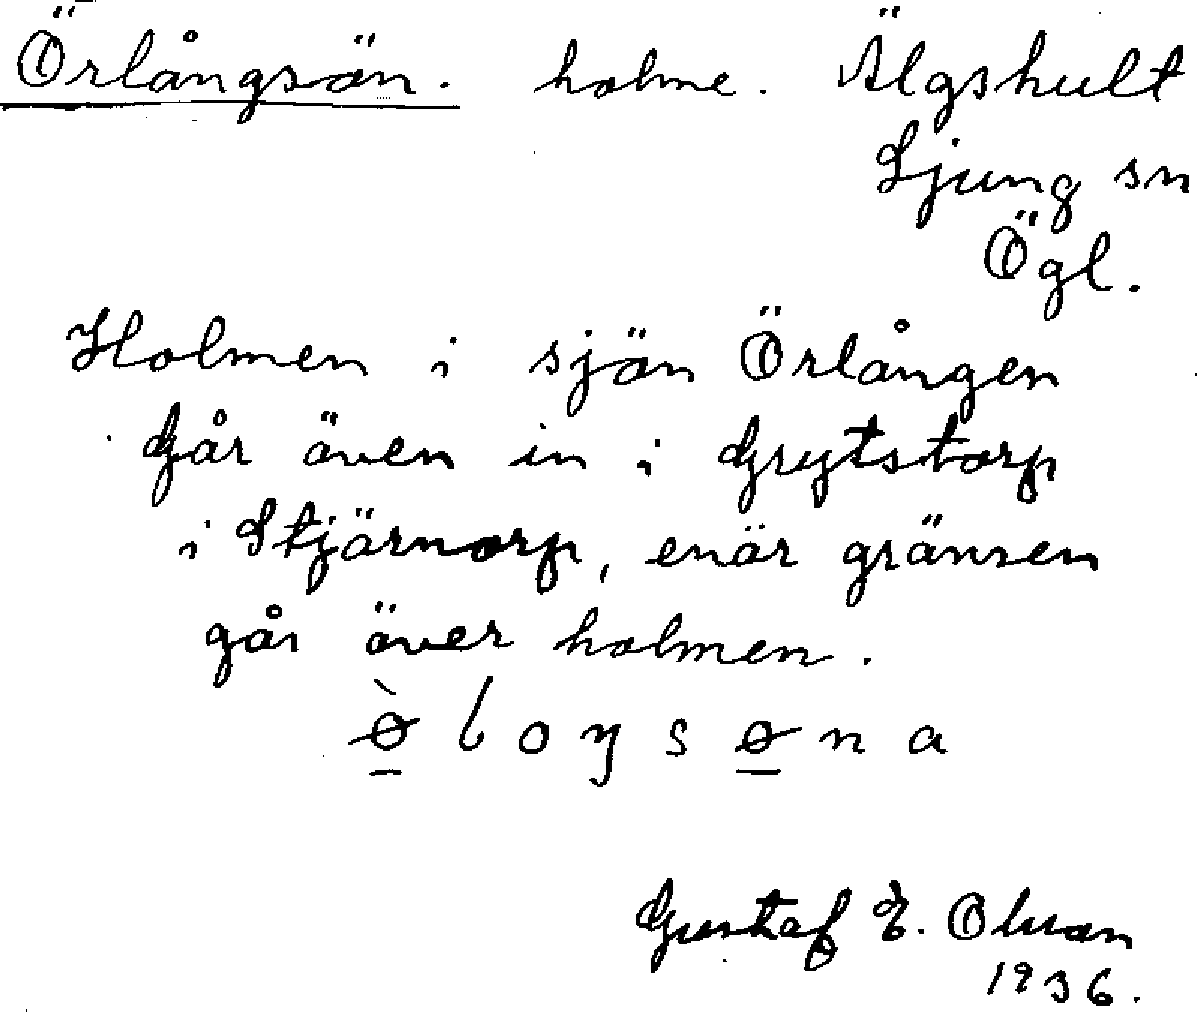 Örlångsön. holme. Älgshult
Ljung sn
Ögl.
Holmen i sjön Örlången
går även in i Grytstorp
i Stjärnorp, enär gränsen
går över holmen.
ø̠̀ l o ŋ s ø̠ n a
Gustaf E. Olsson
1936.